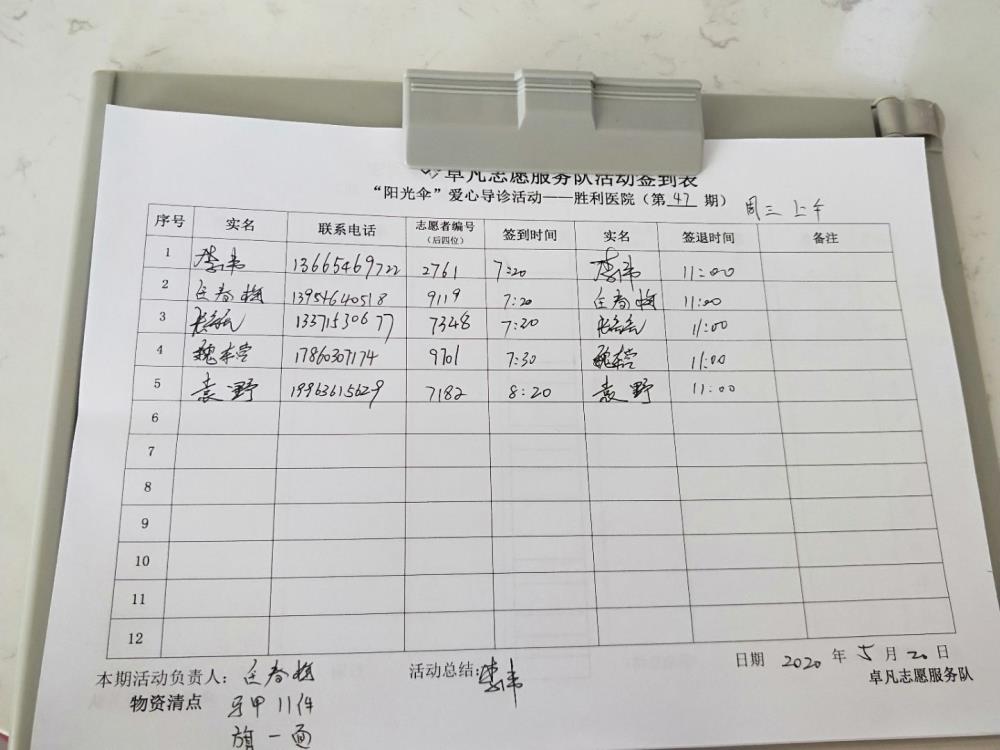 卓凡志愿服务队活动签到表
“阳光伞”爱心导诊活动——胜利医院（第 47 期） 周三上午
序号 实名 联系电话 志愿者编号（后四位） 签到时间 实名 签退时间 备注
1 李伟 13665469722 2761 7:20 李伟 11:00
2 匡春梅 13954640518 9119 7:20 匡春梅 11:00
3 13371530677 7348 7:20 11:00
4 魏 17860307174 9701 7:30 魏 11:00
5 袁野 19963615629 7182 8:20 袁野 11:00
6
7
8
9
10
11
12
本期活动负责人：匡春梅 活动总结:李伟 日期 2020 年 5 月 20 日
物资清点 马甲11件 卓凡志愿服务队
旗一面